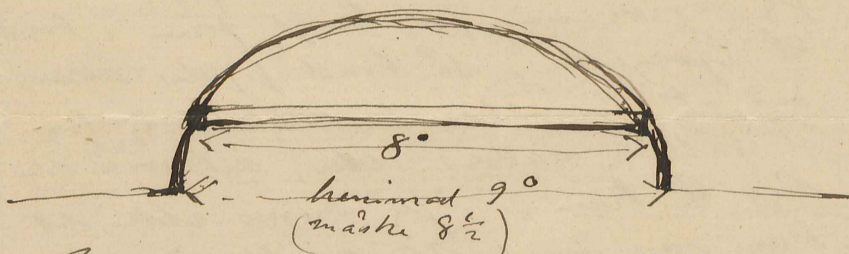 8°
henimod 9°
(måske 8½)